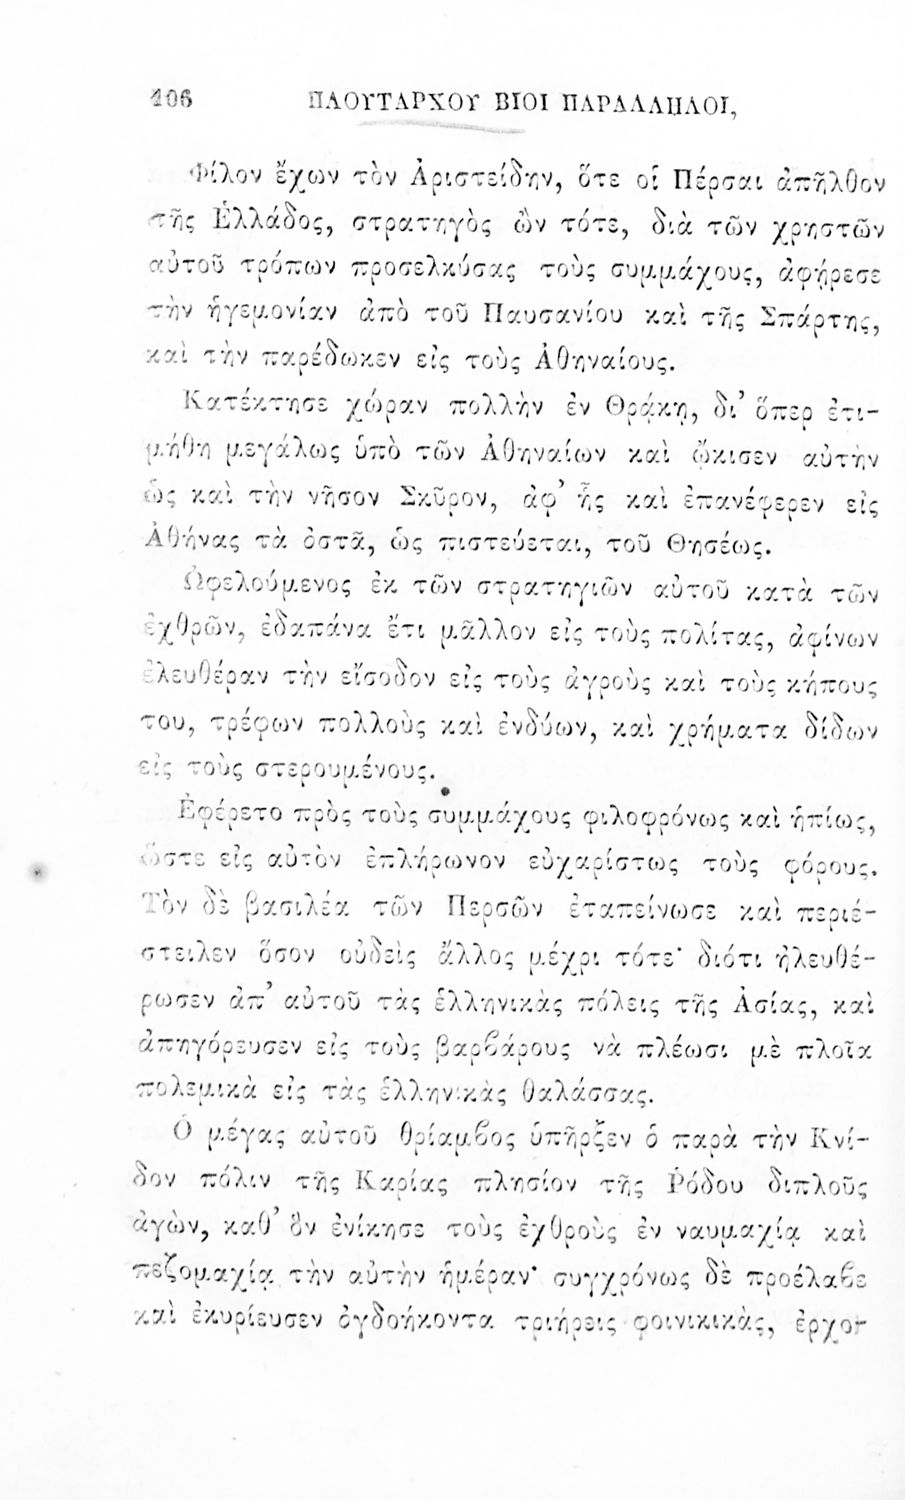 106 ΠΛΟΥΤΑΡΧΟΥ ΒΙΟΙ ΠΑΡΑΛΛΗΛΟΙ,
Φίλον ἔχων τὸν Ἀριστείδην, ὅτε οἱ Πέρσαι ἀπῆλθον
τῆς Ἑλλάδος, στρατηγὸς ὢν τότε, διὰ τῶν χρηστῶν
αὐτοῦ τρόπων προσελκύσας τοὺς συμμάχους, ἀφῄρεσε
τὴν ἡγεμονίαν ἀπὸ τοῦ Παυσανίου καὶ τῆς Σπάρτης,
καὶ τὴν παρέδωκεν εἰς τοὺς Ἀθηναίους.
Κατέκτησε χώραν πολλὴν ἐν Θρᾴκῃ, δι’ ὅπερ ἐτι-
μήθη μεγάλως ὑπὸ τῶν Ἀθηναίων καὶ ᾤκισεν αὐτὴν
ὡς καὶ τὴν νῆσον Σκῦρον, ἀφ’ ἧς καὶ ἐπανέφερεν εἰς
Ἀθήνας τὰ ὀστᾶ, ὡς πιστεύεται, τοῦ Θησέως.
Ὠφελούμενος ἐκ τῶν στρατηγιῶν αὐτοῦ κατὰ τῶν
ἐχθρῶν, ἐδαπάνα ἔτι μᾶλλον εἰς τοὺς πολίτας, ἀφίνων
ἐλευθέραν τὴν εἴσοδον εἰς τοὺς ἀγροὺς καὶ τοὺς κήπους
του, τρέφων πολλοὺς καὶ ἐνδύων, καὶ χρήματα δίδων
εἰς τοὺς στερουμένους.
Ἐφέρετο πρὸς τοὺς συμμάχους φιλοφρόνως καὶ ἠπίως,
ὥστε εἰς αὐτὸν ἐπλήρωνον εὐχαρίστως τοὺς φόρους.
Τὸν δὲ βασιλέα τῶν Περσῶν ἐταπείνωσε καὶ περιέ-
στειλεν ὅσον οὐδεὶς ἄλλος μέχρι τότε· διότι ἠλευθέ-
ρωσεν ἀπ’ αὐτοῦ τὰς ἑλληνικὰς πόλεις τῆς Ἀσίας, καὶ
ἀπηγόρευσεν εἰς τοὺς βαρϐάρους νὰ πλέωσι μὲ πλοῖα
πολεμικὰ εἰς τὰς ἑλληνικὰς θαλάσσας.
Ὁ μέγας αὐτοῦ θρίαμϐος ὑπῆρξεν ὁ παρὰ τὴν Κνί-
δον πόλιν τῆς Καρίας πλησίον τῆς Ῥόδου διπλοῦς
ἀγὼν, καθ’ ὃν ἐνίκησε τοὺς ἐχθροὺς ἐν ναυμαχίᾳ καὶ
πεζομαχίᾳ τὴν αὐτὴν ἡμέραν· συγχρόνως δὲ προέλαϐε
καὶ ἐκυρίευσεν ὀγδοήκοντα τριήρεις φοινικικὰς, ἐρχο-